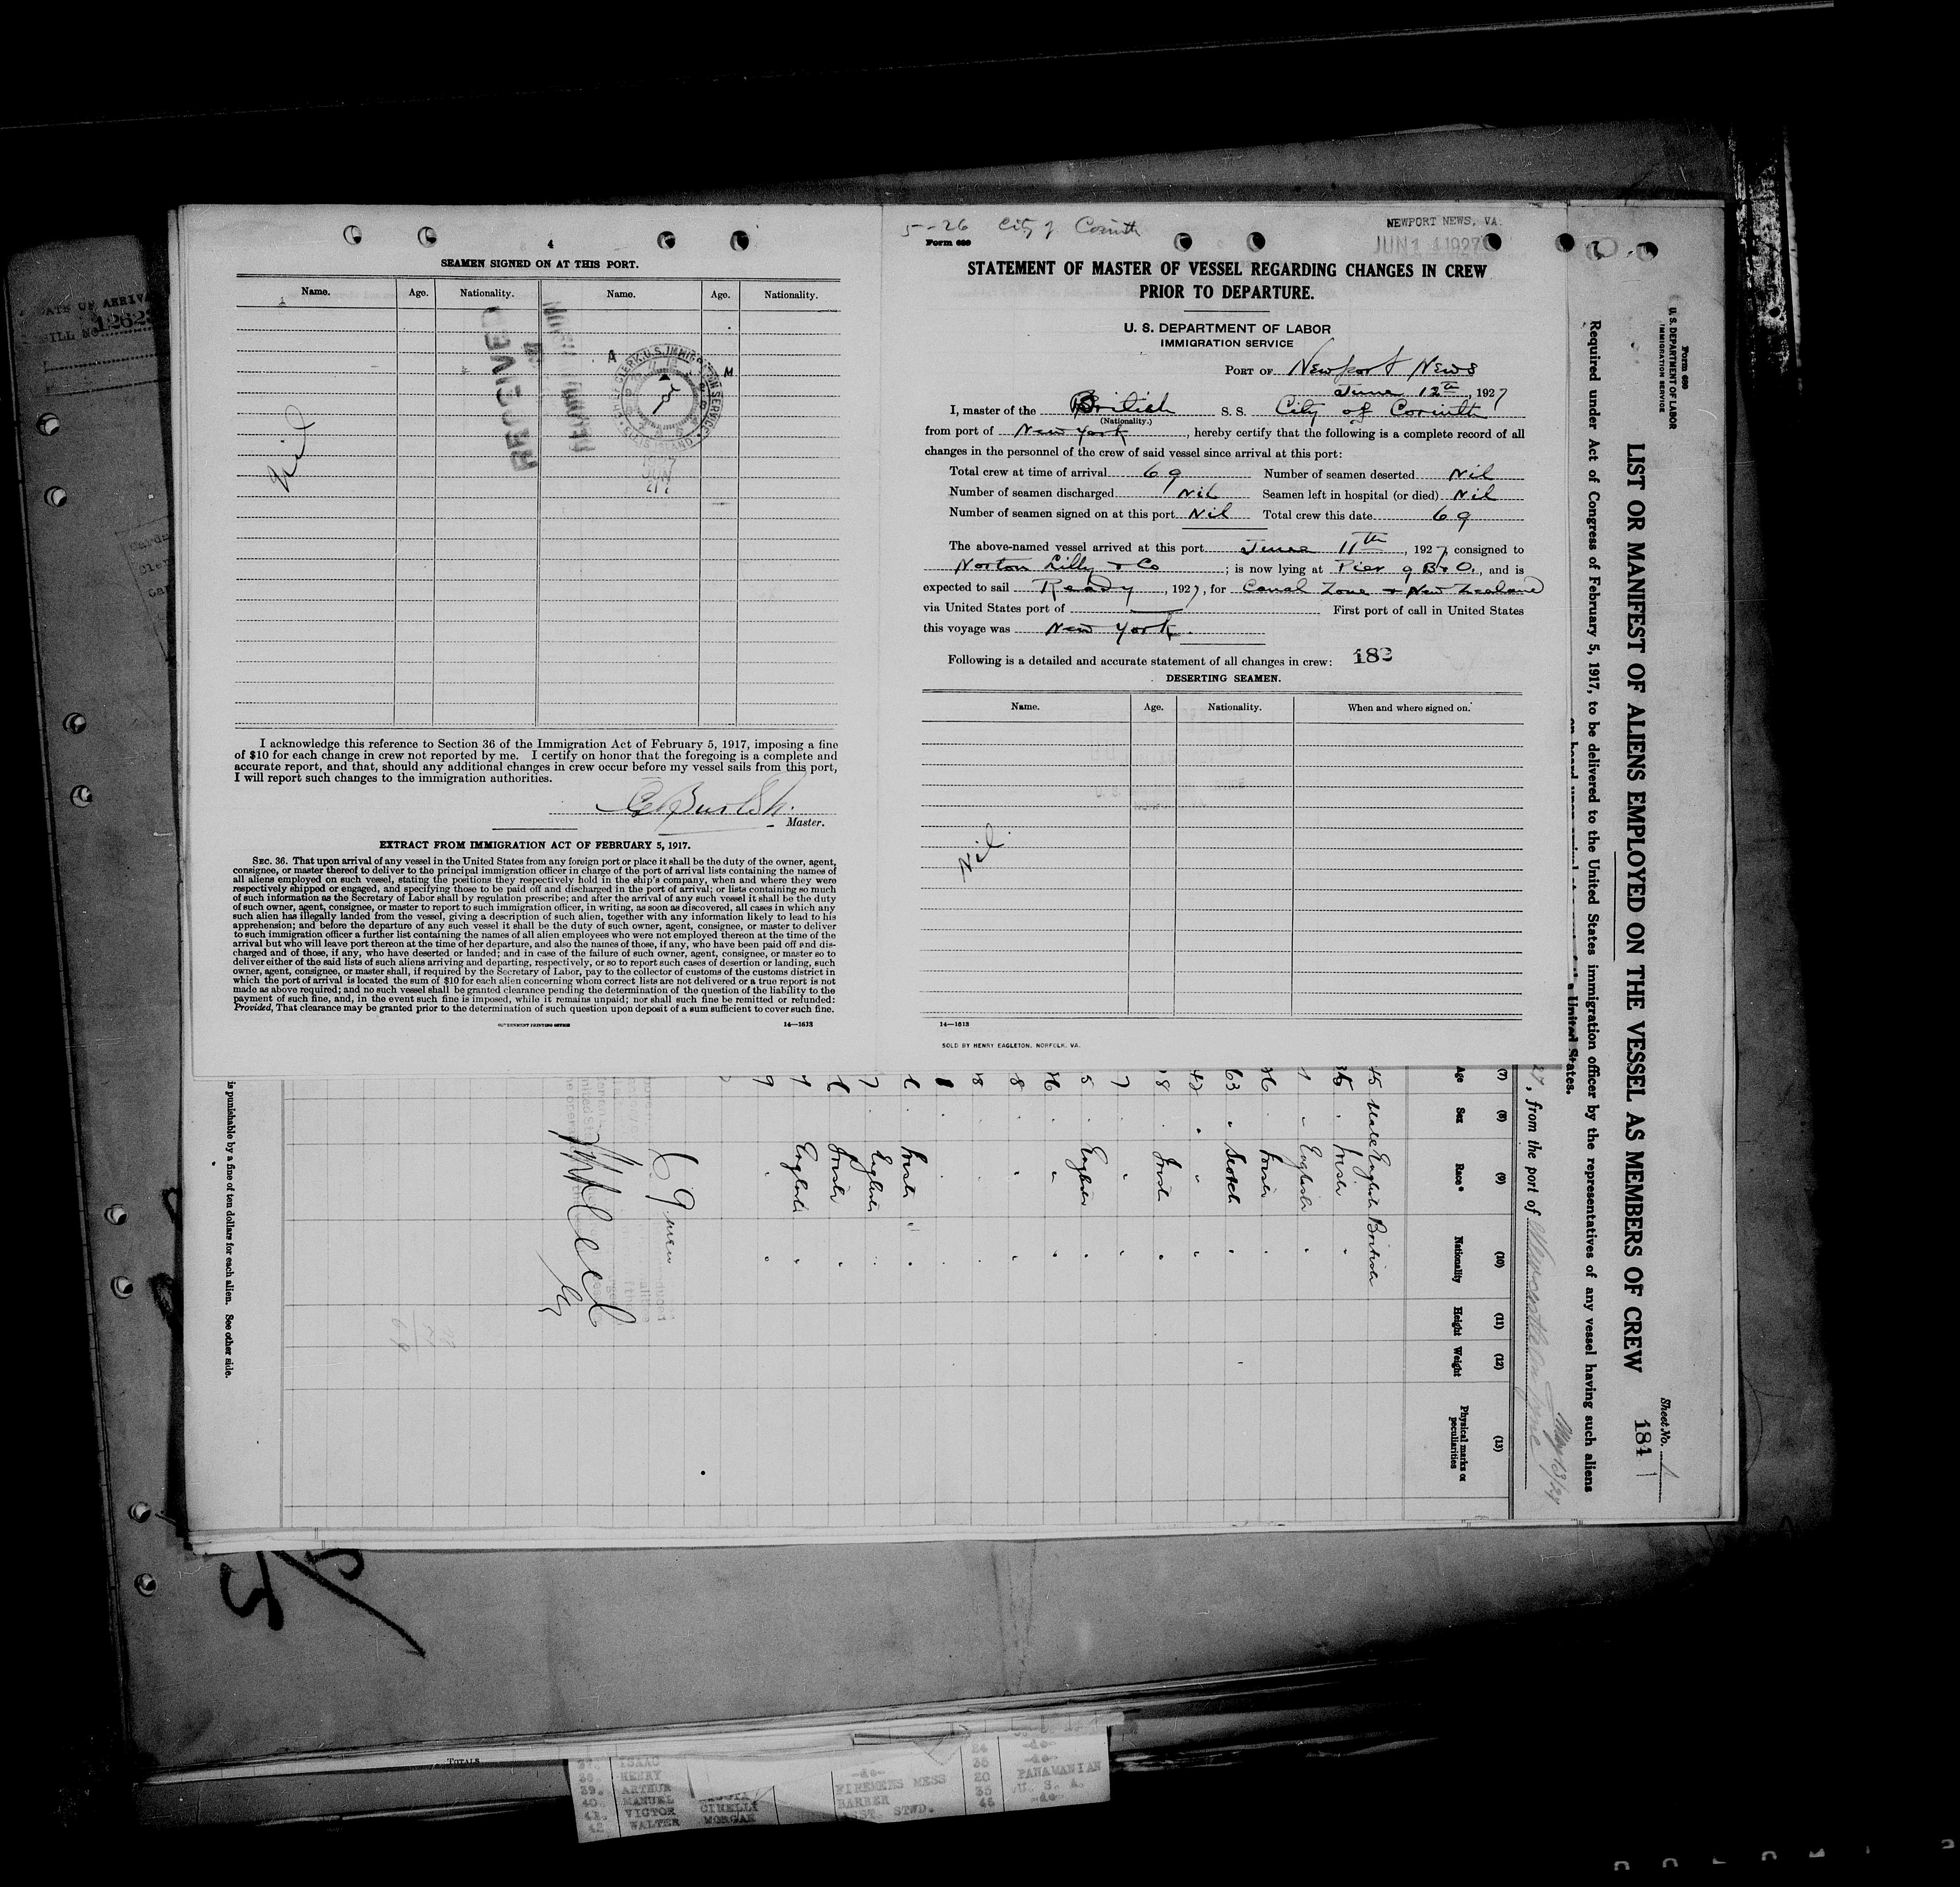 4
SEAMEN SIGNED ON AT THIS PORT.
Name. Age. Nationality. Name. Age. Nationality.
RECEIVED
CLERK U.S. IMMIGRATION SERVICE
ELLIS ISLAND
A M
1927
JUN
Nil
I acknowledge this reference to Section 36 of the Immigration Act of February 5, 1917, imposing a fine
of $10 for each change in crew not reported by me. I certify on honor that the foregoing is a complete and
accurate report, and that, should any additional changes in crew occur before my vessel sails from this port,
I will report such changes to the immigration authorities.
Master.
EXTRACT FROM IMMIGRATION ACT OF FEBRUARY 5, 1917.
SEC. 36. That upon arrival of any vessel in the United States from any foreign port or place it shall be the duty of the owner, agent,
consignee, or master thereof to deliver to the principal immigration officer in charge of the port of arrival lists containing the names of
all aliens employed on such vessel, stating the positions they respectively hold in the ship's company, when and where they were
respectively shipped or engaged, and specifying those to be paid off and discharged in the port of arrival; or lists containing so much
of such information as the Secretary of Labor shall by regulation prescribe; and after the arrival of any such vessel it shall be the duty
of such owner, agent, consignee, or master to report to such immigration officer, in writing, as soon as discovered, all cases in which any
such alien has illegally landed from the vessel, giving a description of such alien, together with any information likely to lead to his
apprehension; and before the departure of any such vessel it shall be the duty of such owner, agent, consignee, or master to deliver
to such immigration officer a further list containing the names of all alien employees who were not employed thereon at the time of the
arrival but who will leave port thereon at the time of her departure, and also the names of those, if any, who have been paid off and dis-
charged and of those, if any, who have deserted or landed; and in case of the failure of such owner, agent, consignee, or master so to
deliver either of the said lists of such aliens arriving and departing, respectively, or so to report such cases of desertion or landing, such
owner, agent, consignee, or master shall, if required by the Secretary of Labor, pay to the collector of customs of the customs district in
which the port of arrival is located the sum of $10 for each alien concerning whom correct lists are not delivered or a true report is not
made as above required; and no such vessel shall be granted clearance pending the determination of the question of the liability to the
payment of such fine, and, in the event such fine is imposed, while it remains unpaid; nor shall such fine be remitted or refunded:
Provided, That clearance may be granted prior to the determination of such question upon deposit of a sum sufficient to cover such fine.
GOVERNMENT PRINTING OFFICE 14—1613
5-26 City of Corinth
NEWPORT NEWS, VA.
JUN 14 1927
Form 689
STATEMENT OF MASTER OF VESSEL REGARDING CHANGES IN CREW
PRIOR TO DEPARTURE.
U. S. DEPARTMENT OF LABOR
IMMIGRATION SERVICE
PORT OF Newport News
June 12th, 1927
I, master of the British S. S. City of Corinth
(Nationality.)
from port of New York, hereby certify that the following is a complete record of all
changes in the personnel of the crew of said vessel since arrival at this port:
Total crew at time of arrival 69 Number of seamen deserted Nil
Number of seamen discharged Nil Seamen left in hospital (or died) Nil
Number of seamen signed on at this port Nil Total crew this date 69
The above-named vessel arrived at this port June 11th, 1927, consigned to
Norton Lilly & Co; is now lying at Pier 9 B & O., and is
expected to sail Ready, 1927, for Canal Zone & New Zealand
via United States port of First port of call in United States
this voyage was New York.
Following is a detailed and accurate statement of all changes in crew: 182
DESERTING SEAMEN.
Name. Age. Nationality. When and where signed on.
Nil
14—1613
SOLD BY HENRY EAGLETON, NORFOLK, VA.
Form 680
U. S. DEPARTMENT OF LABOR
IMMIGRATION SERVICE
Sheet No. 1
LIST OR MANIFEST OF ALIENS EMPLOYED ON THE VESSEL AS MEMBERS OF CREW 181
Required under Act of Congress of February 5, 1917, to be delivered to the United States immigration officer by the representatives of any vessel having such aliens
United States.
27, from the port of Newcastle on Tyne May 13/27
(7) (8) (9) (10) (11) (12) (13)
Age Sex Race* Nationality Height Weight Physical marks or peculiarities
45 Male English British
Irish
English
Irish
63 Scotch
Irish
English
Irish
English
Irish
English
is punishable by a fine of ten dollars for each alien. See other side.
12623
TOTALS
37. ISAAC
38. HENRY
39. ARTHUR
40. MANUEL
41. VICTOR CIRELLI
42. WALTER MORGAN
-do-
FIREMENS MESS
BARBER
ASST. STWD.
24 -do-
35 -do-
20 PANAMANIAN
35 U. S. A.
45 -do-